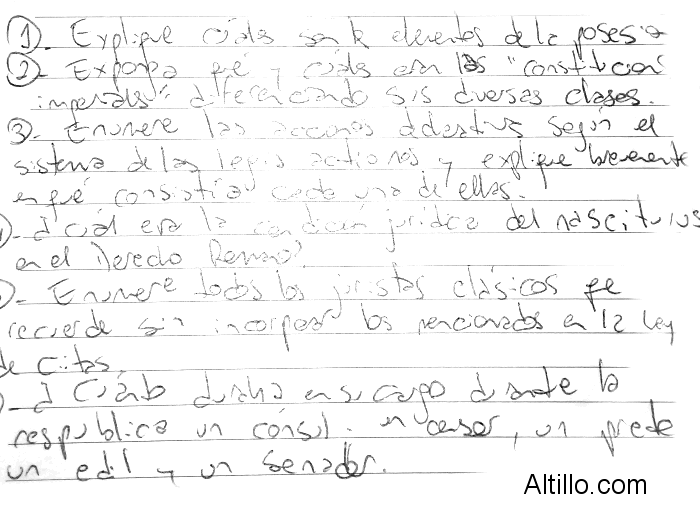 1. Explique cuáles son los elementos de la posesión
2. Exponga qué y cuáles eran las "constitucion
imperiales" diferenciando sus diversas clases.
3. Enumere las acciones declarativas según el
sistema de las legis actiones y explique brevemente
en qué consistía cada una de ellas.
¿Cuál era la condición jurídica del nasciturus
en el Derecho Romano?
Enumere todos los juristas clásicos que
recuerde sin incorporar los mencionados en la ley
de citas.
¿Cuánto duraba en su cargo durante la
respublica un cónsul. un censor, un
un edil y un senador.
Altillo.com